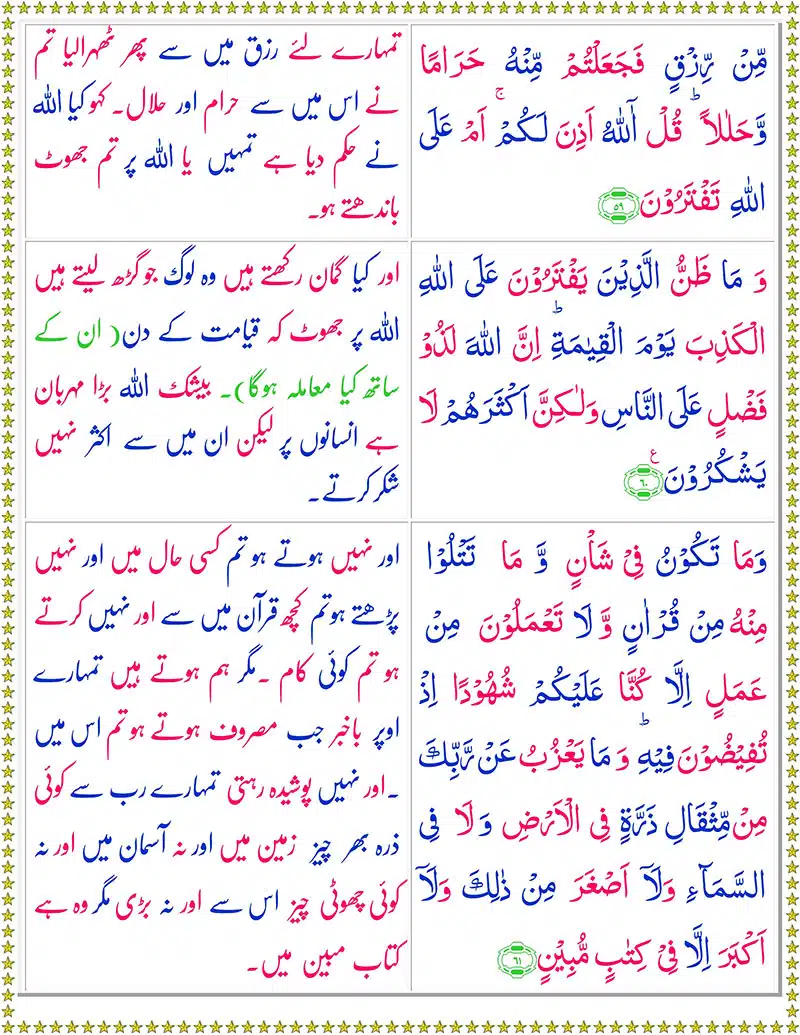 مِّنْ رِّزْقٍ فَجَعَلْتُمْ مِّنْهُ حَرَامًا
وَّحَلٰلًا ؕ قُلْ آٰللّٰهُ اَذِنَ لَـكُمْ ۚ اَمْ عَلَى
اللّٰهِ تَفْتَرُوْنَ ﴿۵۹﴾
تمہارے لئے رزق میں سے پھر ٹھہرالیا تم
نے اس میں سے حرام اور حلال۔ کہو کیا اللہ
نے حکم دیا ہے تمہیں یا اللہ پر تم جھوٹ
باندھتے ہو۔
وَ مَا ظَنُّ الَّذِيْنَ يَفْتَرُوْنَ عَلَى اللّٰهِ
الْكَذِبَ يَوْمَ الْقِيٰمَةِ ؕ اِنَّ اللّٰهَ لَذُوْ
فَضْلٍ عَلَى النَّاسِ وَلٰـكِنَّ اَكْثَرَهُمْ لَا
يَشْكُرُوْنَ ﴿۶۰﴾ ع
اور کیا گمان رکھتے ہیں وہ لوگ جو گڑھ لیتے ہیں
اللہ پر جھوٹ کہ قیامت کے دن( ان کے
ساتھ کیا معاملہ ہوگا)۔ بیشک اللہ بڑا مہربان
ہے انسانوں پر لیکن ان میں سے اکثر نہیں
شکر کرتے۔
وَمَا تَكُوْنُ فِىْ شَاْنٍ وَّ مَا تَتْلُوْا
مِنْهُ مِنْ قُرْاٰنٍ وَّ لَا تَعْمَلُوْنَ مِنْ
عَمَلٍ اِلَّا كُنَّا عَلَيْكُمْ شُهُوْدًا اِذْ
تُفِيْضُوْنَ فِيْهِ ؕ وَ مَا يَعْزُبُ عَنْ رَّبِّكَ
مِنْ مِّثْقَالِ ذَرَّةٍ فِى الْاَرْضِ وَ لَا فِى
السَّمَآءِ وَلَاۤ اَصْغَرَ مِنْ ذٰلِكَ وَلَاۤ
اَكْبَرَ اِلَّا فِىْ كِتٰبٍ مُّبِيْنٍ ﴿۶۱﴾
اور نہیں ہوتے ہو تم کسی حال میں اور نہیں
پڑھتے ہو تم کچھ قرآن میں سے اور نہیں کرتے
ہو تم کوئی کام ۔ مگر ہم ہوتے ہیں تمہارے
اوپر باخبر جب مصروف ہوتے ہو تم اس میں
۔ اور نہیں پوشیدہ رہتی تمہارے رب سے کوئی
ذرہ بھر چیز زمین میں اور نہ آسمان میں اور نہ
کوئی چھوٹی چیز اس سے اور نہ بڑی مگر وہ ہے
کتاب مبین میں۔